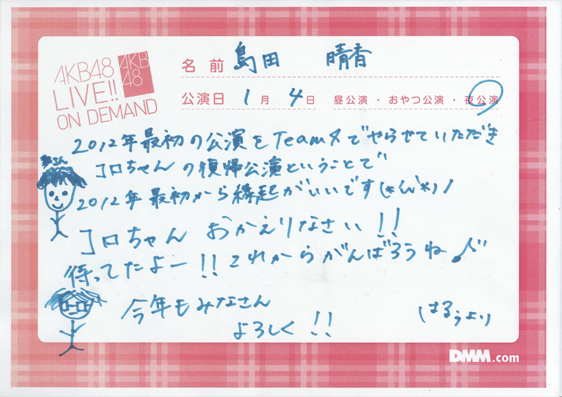 AKB48
LIVE!!
ON DEMAND
AKB
48
名前 島田 晴香
公演日 1月 4日 昼公演・おやつ公演・夜公演
2012年最初の公演をTeam4でやらせていただき
コロちゃんの復帰公演ということで
2012年最初から縁起がいいです(*^^*)/
コロちゃん おかえりなさい!!
待ってたよー!!これからがんばろうね♪
今年もみなさん
よろしく!!
はるぅより
DMM.com